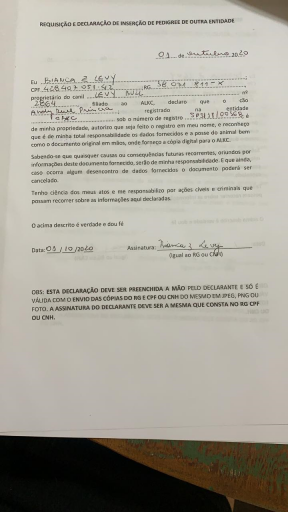 REQUISIÇÃO E DECLARAÇÃO DE INSERÇÃO DE PEDIGREE DE OUTRA ENTIDADE
01 de outubro /2020
Eu BIANCA Z LEVY
CPF RG
proprietário do canil LEVY nº
2864 filiado ao ALKC, declaro que o cão
registrado na entidade
sob o número de registro é
de minha propriedade, autorizo que seja feito o registro em meu nome, e reconheço
que é de minha total responsabilidade os dados fornecidos e a posse do animal bem
como o documento original em mãos, onde forneço a cópia digital para o ALKC.
Sabendo-se que quaisquer causas ou consequências futuras recorrentes, oriundos por
informações deste documento fornecido, serão de minha responsabilidade. E que ainda,
caso ocorra algum desencontro de dados fornecidos o documento poderá ser
cancelado.
Tenho ciência dos meus atos e me responsabilizo por ações civeis e criminais que
possam recorrer sobre as informações aqui declaradas.
O acima descrito é verdade e dou fé
Data: 01/10/2020 Assinatura: Bianca Z Levy
(Igual ao RG ou CNH)
OBS: ESTA DECLARAÇÃO DEVE SER PREENCHIDA A MÃO PELO DECLARANTE E SÓ É
VÁLIDA COM O ENVIO DAS CÓPIAS DO RG E CPF OU CNH DO MESMO EM JPEG, PNG OU
FOTO. A ASSINATURA DO DECLARANTE DEVE SER A MESMA QUE CONSTA NO RG CPF
OU CNH.